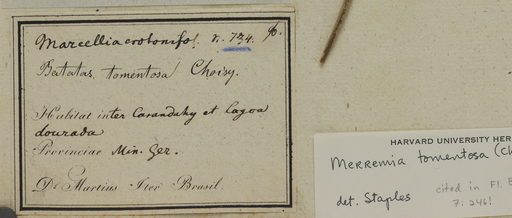 Marcellia crotonifol. n. 724. %.
Batatas tomentosa Choisy.
Habitat inter Carandahy et Lagoa
dourada
Provinciae Min. Ger.
Dr Martius Iter Brasil.
HARVARD UNIVERSITY HER
Merremia tomentosa (Ch
det. Staples
cited in Fl. E
7: 246!